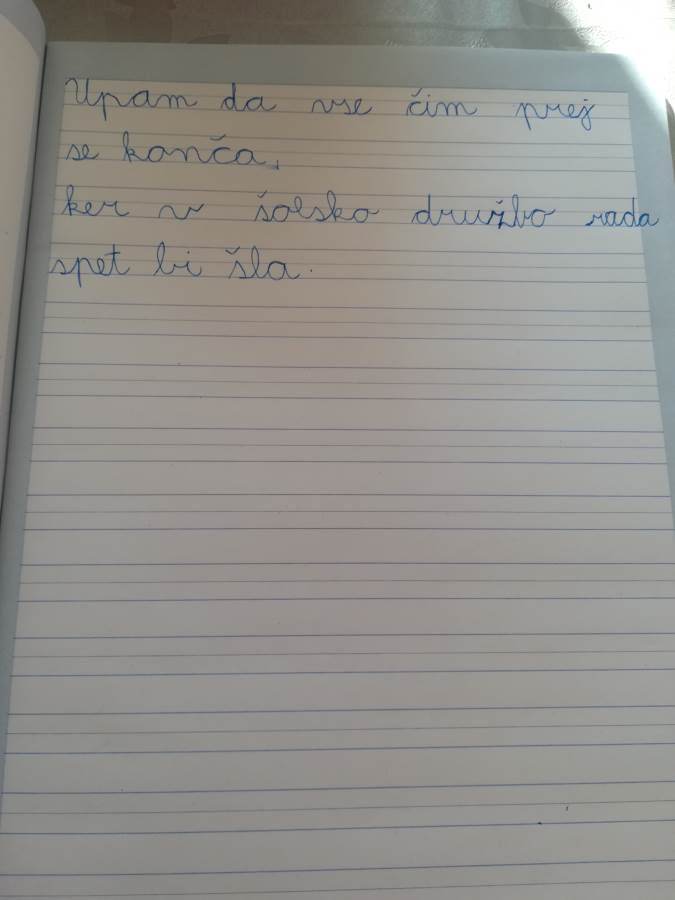 Upam da vse čim prej
se konča,
ker v šolsko družbo rada
spet bi šla.